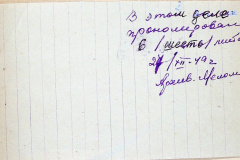 В этом деле
пронумерован
6 /шесть/ листо
/XII-49 г
Архив.